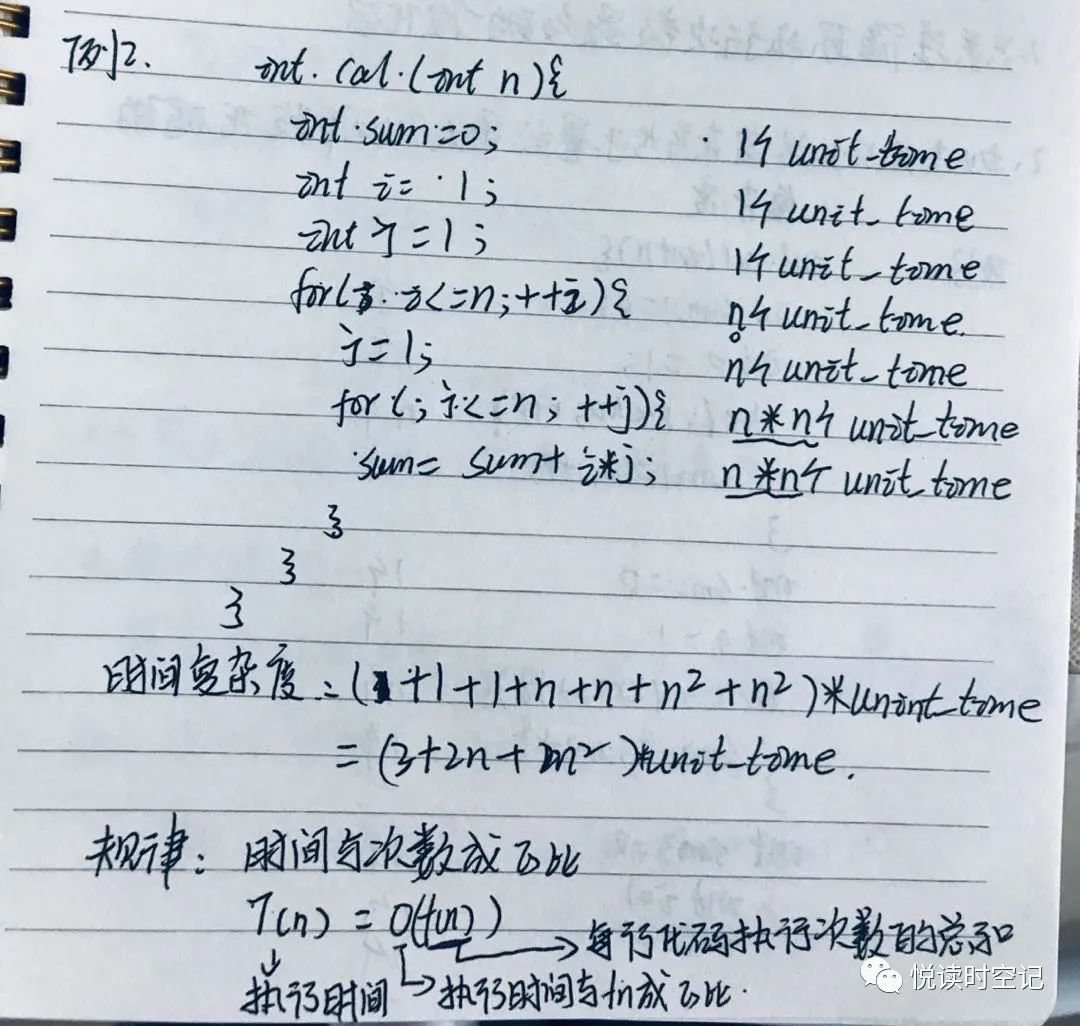 例2. int. Cal.(int n){
int sum=0; 1个 unit_time
int i= 1; 1个 unit_time
int j=1; 1个 unit_time
for(; i<=n; ++i){ n个 unit_time.
j=1; n个 unit_time
for(; j<=n; ++j){ n*n个 unit_time
sum= sum+ i*j; n*n个 unit_time
}
}
}
时间复杂度=(1+1+1+n+n+n²+n²)*unint_time
=(3+2n+2n²)*unit_time.
规律: 时间与次数成正比
T(n) = O(f(n))
每行代码执行次数的总和
执行时间 执行时间与fn成正比.
悦读时空记